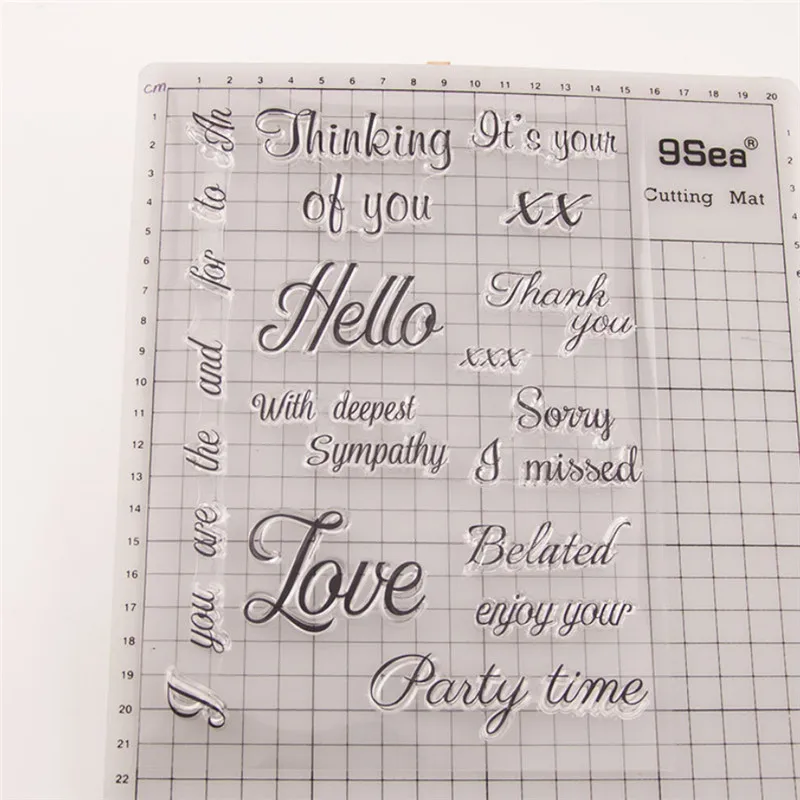 cm
1 2 3 4 5 6 7 8 9 10 11 12 13 14 15 16 17 18 19 20
1
2
3
4
5
6
7
8
9
10
11
12
13
14
15
16
17
18
19
20
21
22
I you are the and for to An
Thinking
of you
It's your
xx
Hello
Thank
you
xxx
With deepest
Sympathy
Sorry
I missed
Love
Belated
enjoy your
Party time
9Sea®
Cutting Mat
1
2
3
4
5